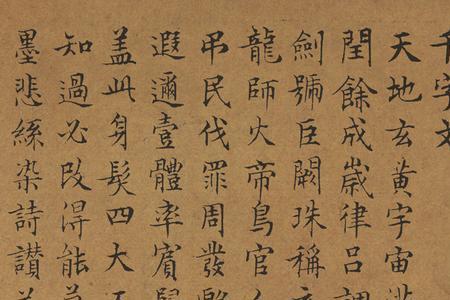 千字文
天地玄黃宇宙
閏餘成歲律呂調
劍號巨闕珠稱
龍師火帝鳥官人
弔民伐罪周發殷
遐邇壹體率賓歸
盖此身髮四大五
知過必改得能莫
墨悲絲染詩讃羔